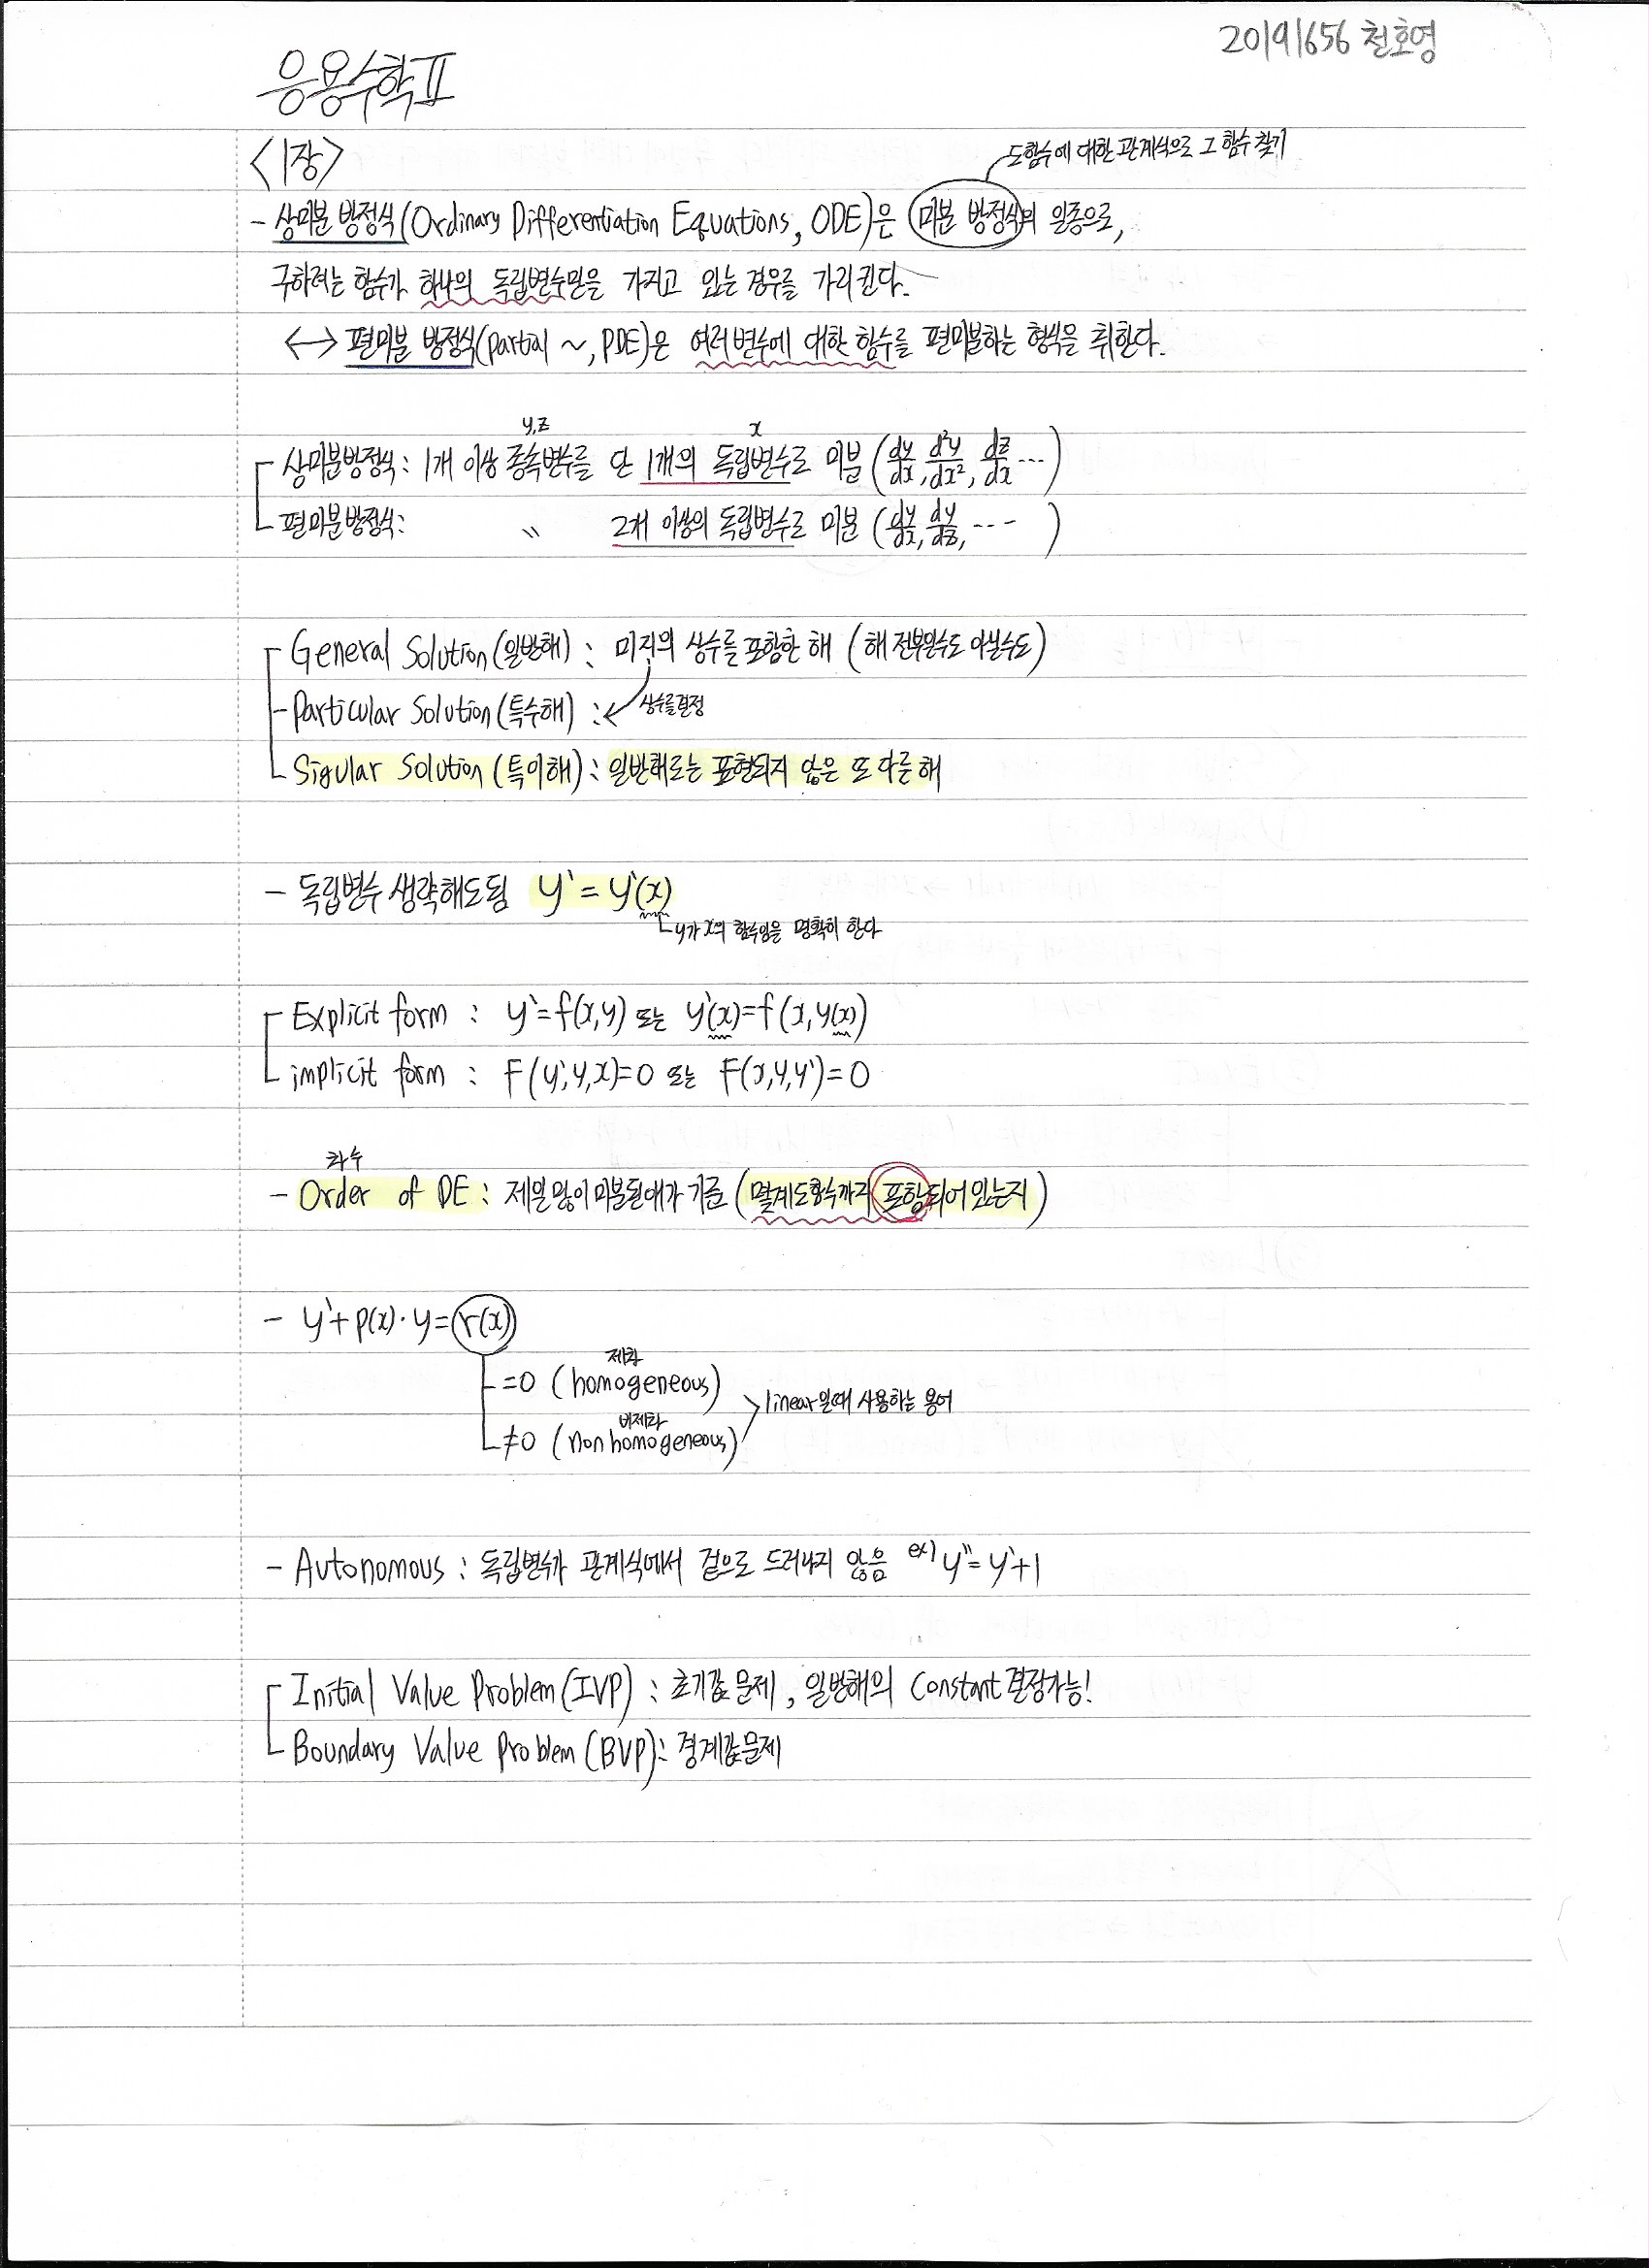 20191656 천호영
응용수학Ⅱ
<1장>
도함수에 대한 관계식으로 그 함수 찾기
- 상미분 방정식(Ordinary Differentiation Equations, ODE)은 미분 방정식의 일종으로,
구하려는 함수가 하나의 독립변수만을 가지고 있는 경우를 가리킨다.
↔ 편미분 방정식(partial ~, PDE)은 여러 변수에 대한 함수를 편미분하는 형식을 취한다.
y,z x
상미분방정식: 1개 이상 종속변수를 단 1개의 독립변수로 미분 (dy/dx, d²y/dx², dz/dx ...)
편미분방정식: 〃 2개 이상의 독립변수로 미분 (dy/dx, dy/dz, ... )
General Solution(일반해) : 미지의 상수를 포함한 해 (해 전부일수도 아닐수도)
Particular Solution(특수해) : ↙ 상수를 결정
Sigular Solution (특이해) : 일반해로는 표현되지 않은 또 다른 해
- 독립변수 생략해도됨 y` = y`(x)
y가 x의 함수임을 명확히 한다
Explicit form : y`=f(x,y) 또는 y`(x)=f(x,y(x))
implicit form : F(y`,y,x)=0 또는 F(x,y,y`)=0
차수
- Order of DE : 제일 많이 미분된애가 기준 (몇계도함수까지 포함되어 있는지)
- y`+p(x)·y=r(x)
제차
=0 (homogeneous)
linear일때 사용하는 용어
비제차
≠0 (nonhomogeneous)
- Autonomous : 독립변수가 관계식에서 겉으로 드러나지 않음 ex) y``=y`+1
Initial Value Problem(IVP) : 초기값 문제, 일반해의 Constant 결정가능!
Boundary Value Problem(BVP): 경계값문제